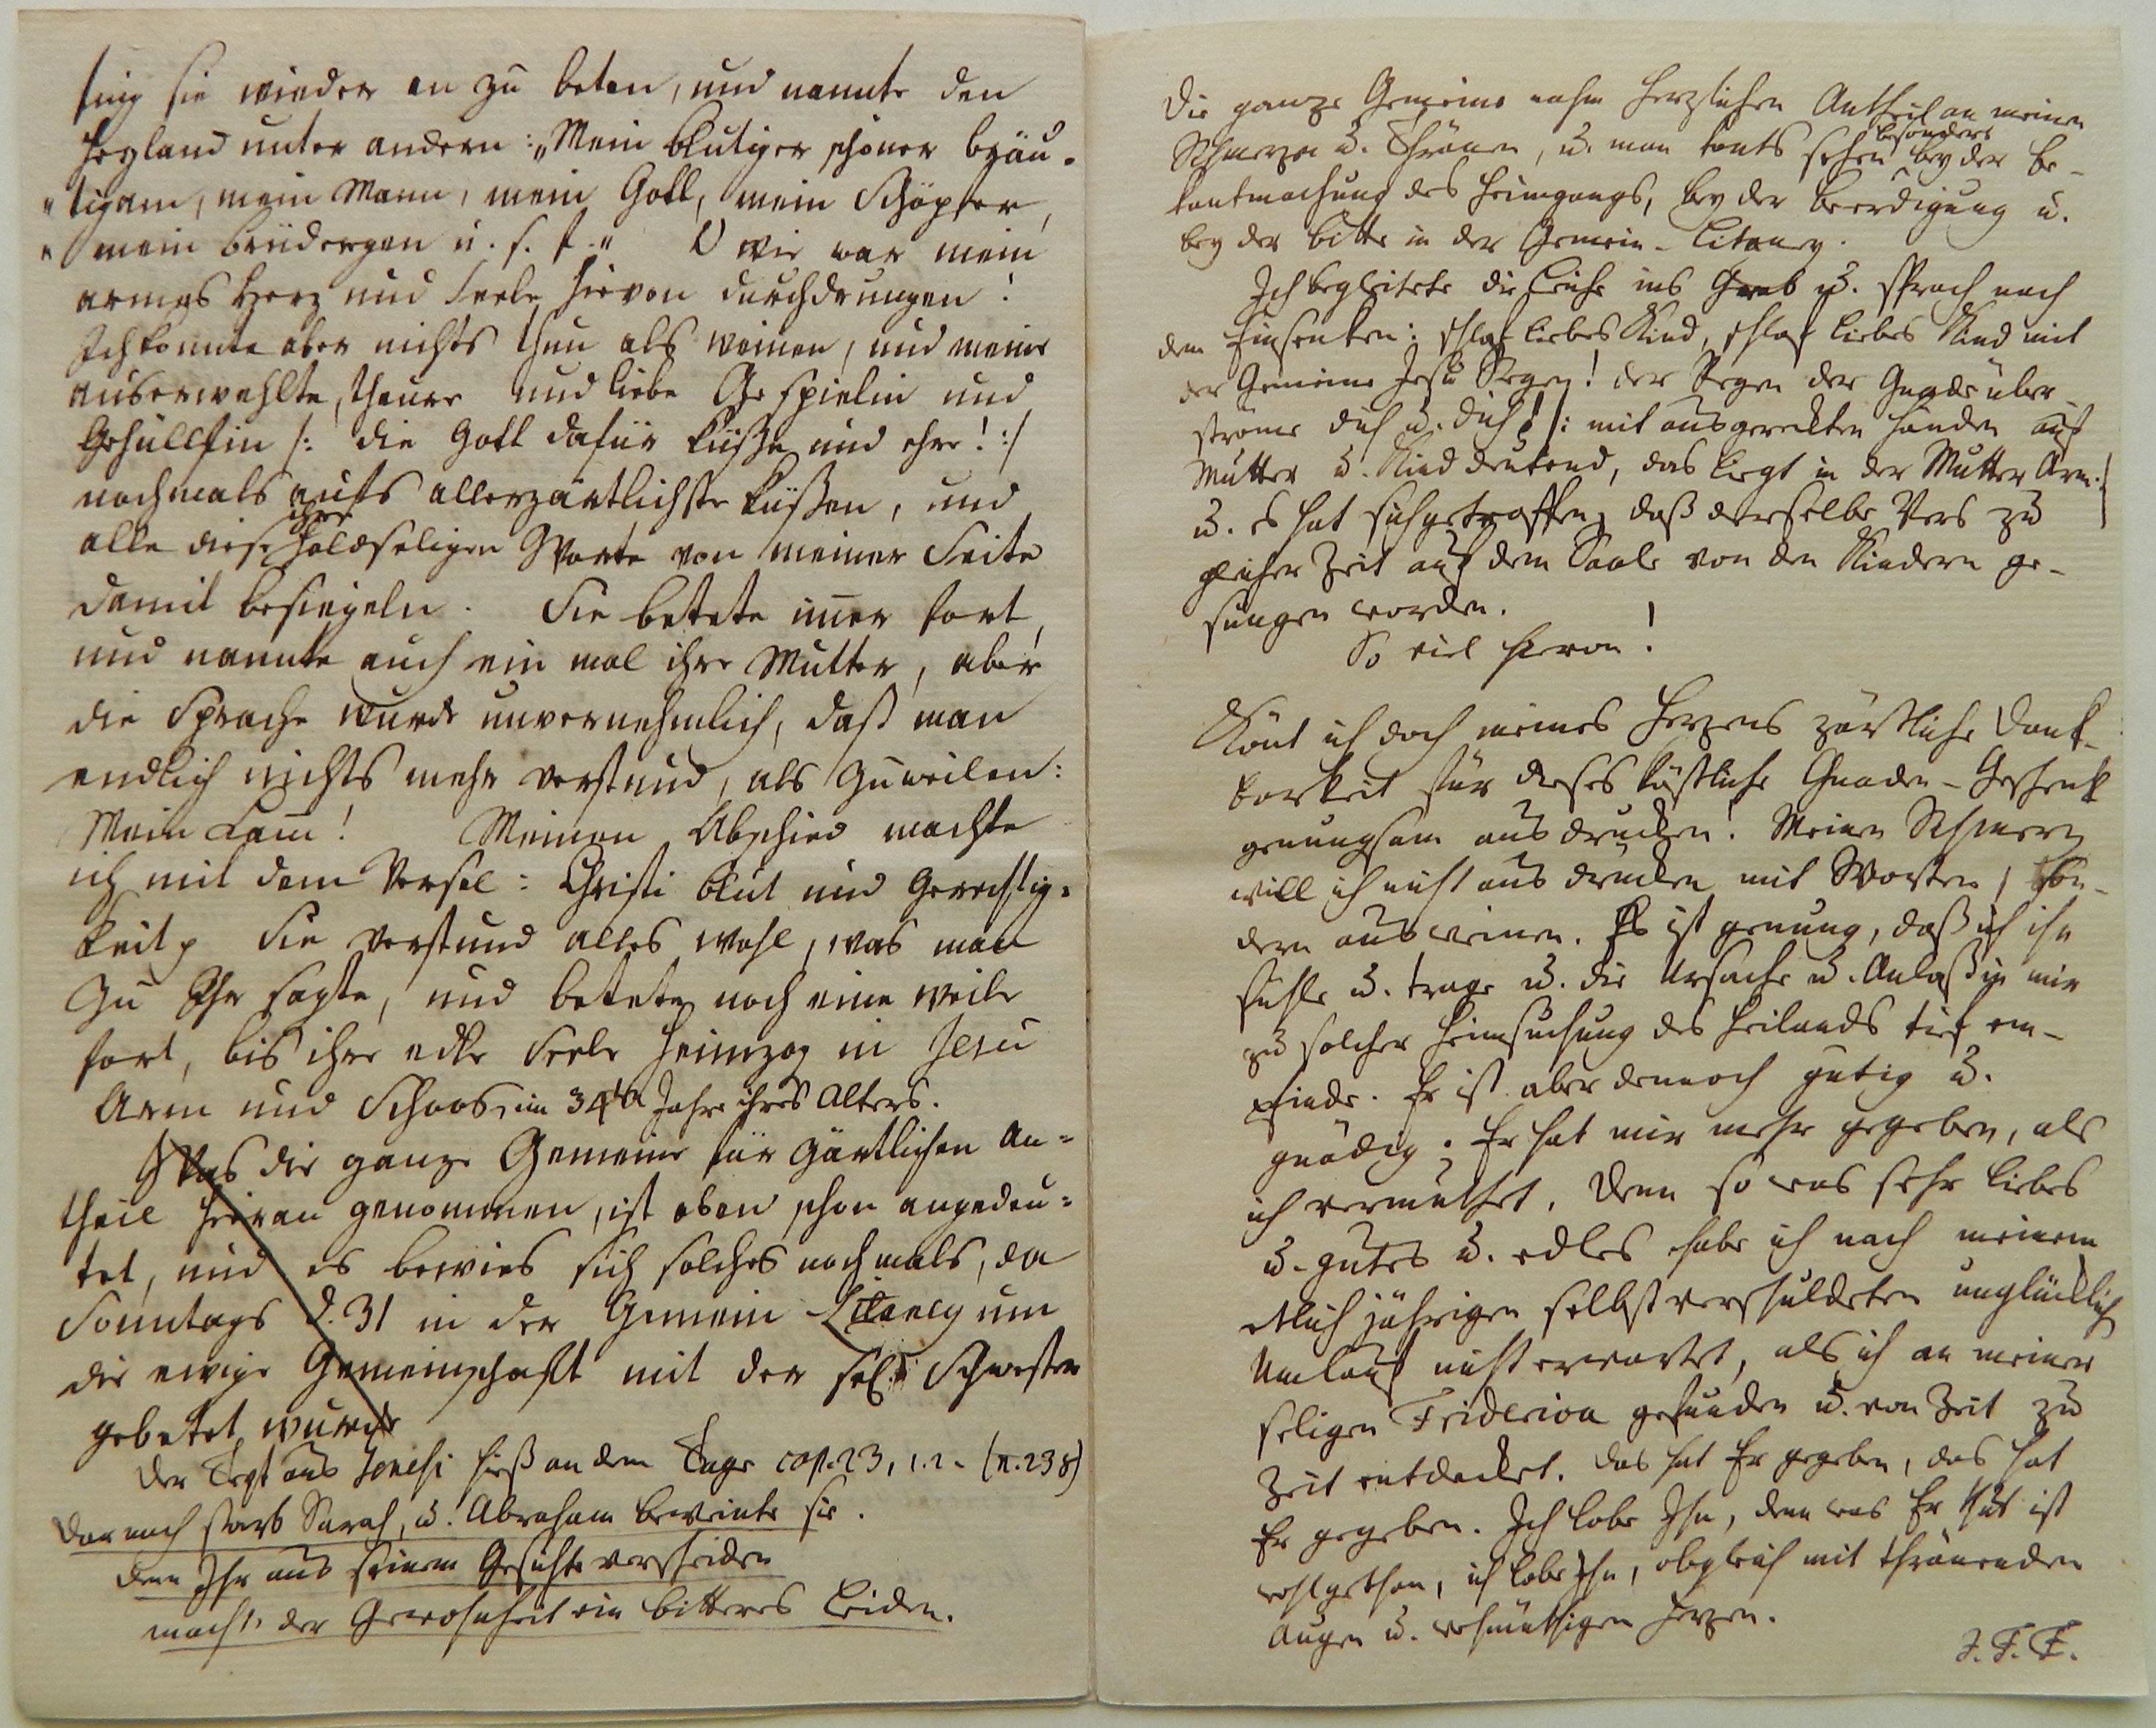 fing sie wieder an zu beten, und nannte den
Heyland unter andern: „Mein blutiger schöner Bräu-
„tigam, mein Mann, mein Gott, mein Schöpfer,
„mein Brüdergen u. s. f.“ O wie war mein
armes Herz und Seele hievon durchdrungen!
Ich konnte aber nichts thun als weinen, und meine
auserwehlte, theure und liebe Gespielin und
Gehülffin /: die Gott dafür küsse und ehre! :/
nochmals aufs allerzärtlichste küssen, und
alle diese ihre holdseligen Worte von meiner Seite
damit besiegeln. Sie betete im̄er fort,
und nannte auch ein mal ihre Mutter, aber
die Sprache wurde unvernehmlich, daß man
endlich nichts mehr verstund, als zuweilen:
Mein Lam̄! Meinen Abschied machte
ich mit dem Versel: Christi Blut und Gerechtig-
keit p Sie verstund alles wohl, was man
zu Ihr sagte, und betete noch eine weile
fort, bis ihre edle Seele heimzog in Jesu
Arm und Schoos, im 34ten Jahre ihres Alters.
Was die ganze Gemeine für zärtlichen An-
theil hieran genommen, ist oben schon angedeu-
tet, und es bewies sich solches nochmals, da
Sonntags d. 31 in der Gemein Litaney um
die ewige Gemeinschaft mit der sel. Schwester
gebetet wurde
Der Text aus Genesi hieß an dem Tage cap. 23, 1. 2. (n. 238)
Darnach starb Sarah, u. Abraham beweinte sie.
denn Ihr aus seinem Gesichte verscheiden
macht der Gewohnheit ein bitteres Leiden.
Die ganze Gemeine nahm herzlichen Antheil an meinen
Schmerzen u. Thränen, u. man konts sehen besonders bey der Be-
kantmachung des Heimgangs, bey der Beerdigung u.
bey der Bitte in der Gemein-Litaney.
Ich begleitete die Leiche ins Grab u. sprach nach
dem Einsenken: schlaf liebes Kind, schlaf liebes Kind mit
der Gemeine Jesu Segen! der Segen der Gnade über-
ströme dich u. dich! /: mit ausgereckten Händen auf
Mutter u. Kind deutend, das liegt in der Mutter Arm :/
u. es hat sich getroffen, daß derselbe Vers zu
gleicher Zeit auf dem Saale von den Kindern ge-
sungen worden.
So viel hievon!
Könt ich doch meines Herzens zärtliche Dank-
barkeit für dieses köstliche Gnaden-Geschenk
genungsam ausdrucken! Meinen Schmerz
will ich nicht ausdrucken mit Worten, son-
dern ausweinen. Es ist genung, daß ich ihn
fühle u. trage u. die Ursache u. Anlaß in mir
zu solcher Heimsuchung des Heilands tief em-
pfinde. Er ist aber dennoch gütig u.
gnädig; Er hat mir mehr gegeben, als
ich vermuthet. Denn so was sehr liebes
u. gutes u. edles habe ich nach meinem
etlich jährigen selbstverschuldeten unglücklich
Umlauf nicht erwartet, als ich an meiner
seligen Friderica gefunden u. von Zeit zu
Zeit entdecket. Das hat Er gegeben, das hat
Er gegeben. Ich lobe Ihn, denn was Er thut ist
wohlgethan, ich lobe Ihn, obgleich mit thränenden
Augen u. wehmüthigen Herzen.